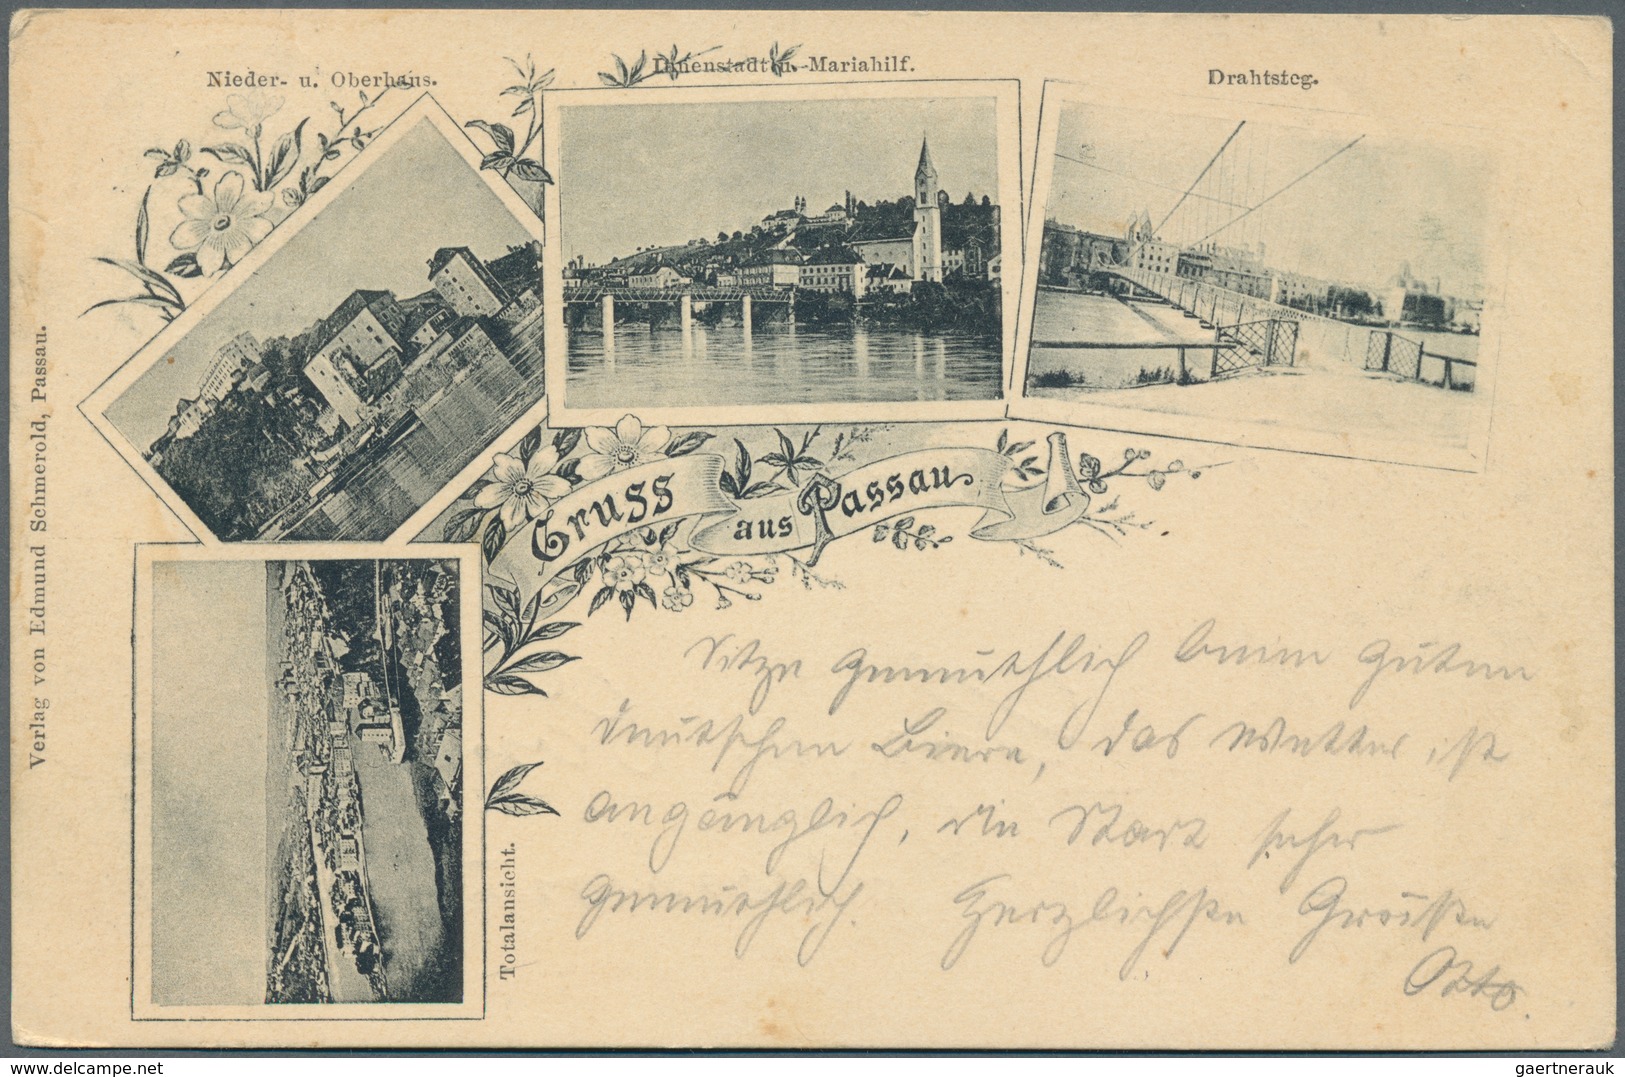 Nieder- u. Oberhaus.
Innenstadt u. Mariahilf.
Drahtsteg.
Gruss aus Passau.
Verlag von Edmund Schmerold, Passau.
Totalansicht.
Sitze gemüthlich beim guten
deutschen Biere, das Wetter ist
angänglich, die Stadt sehr
gemüthlich. Herzlichste Grüße
Otto.
gaertnerauk